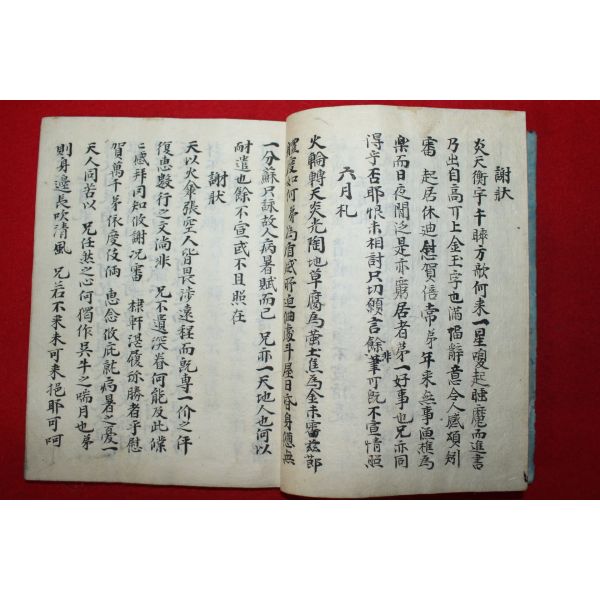 謝狀
炎天衡宇午睡方歌何來一星喚起睡魔而進書
乃出自高丌上金玉字也滿幅辭意令人感頌矧
審 起居休迪慰賀倍常弟年來無事漁樵為
樂而日夜閒泛是亦窮居者第一好事也兄亦同
得宇否耶恨未相討只切願言餘非筆可既不宣情照
六月札
火輪轉天炎光陶地草腐為螢土焦為金未審玆節
體度如何弟為宿慼所迫細處斗屋日昏身憊無
一分蘇只詠故人病暑賦而已 兄亦一天地人也何以
耐遣也餘不宣或不且照在
謝狀
天以火傘張空人皆畏涉遠程而既專一价之伻
復惠數行之文尚非 兄不遺深眷何能及此僕
僕感拜同知攸謝況審 棣軒湛履珎勝者乎慰
賀萬千弟依度伎倆 惠念攸庇就病暑之憂一
天人同苦以 兄任熱之心何獨作吳牛之喘月也弟
則身邊長吹清風 兄若不來未可來挹耶可呵